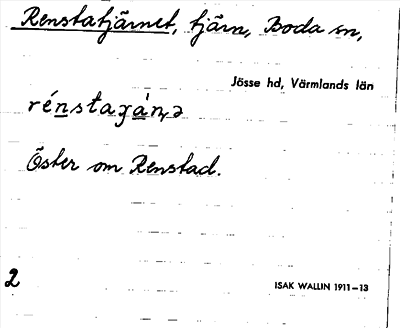 Renstatjärnet, tjärn, Boda sn,
Jösse hd, Värmlands län
Öster om Renstad.
2
ISAK WALLIN 1911–13